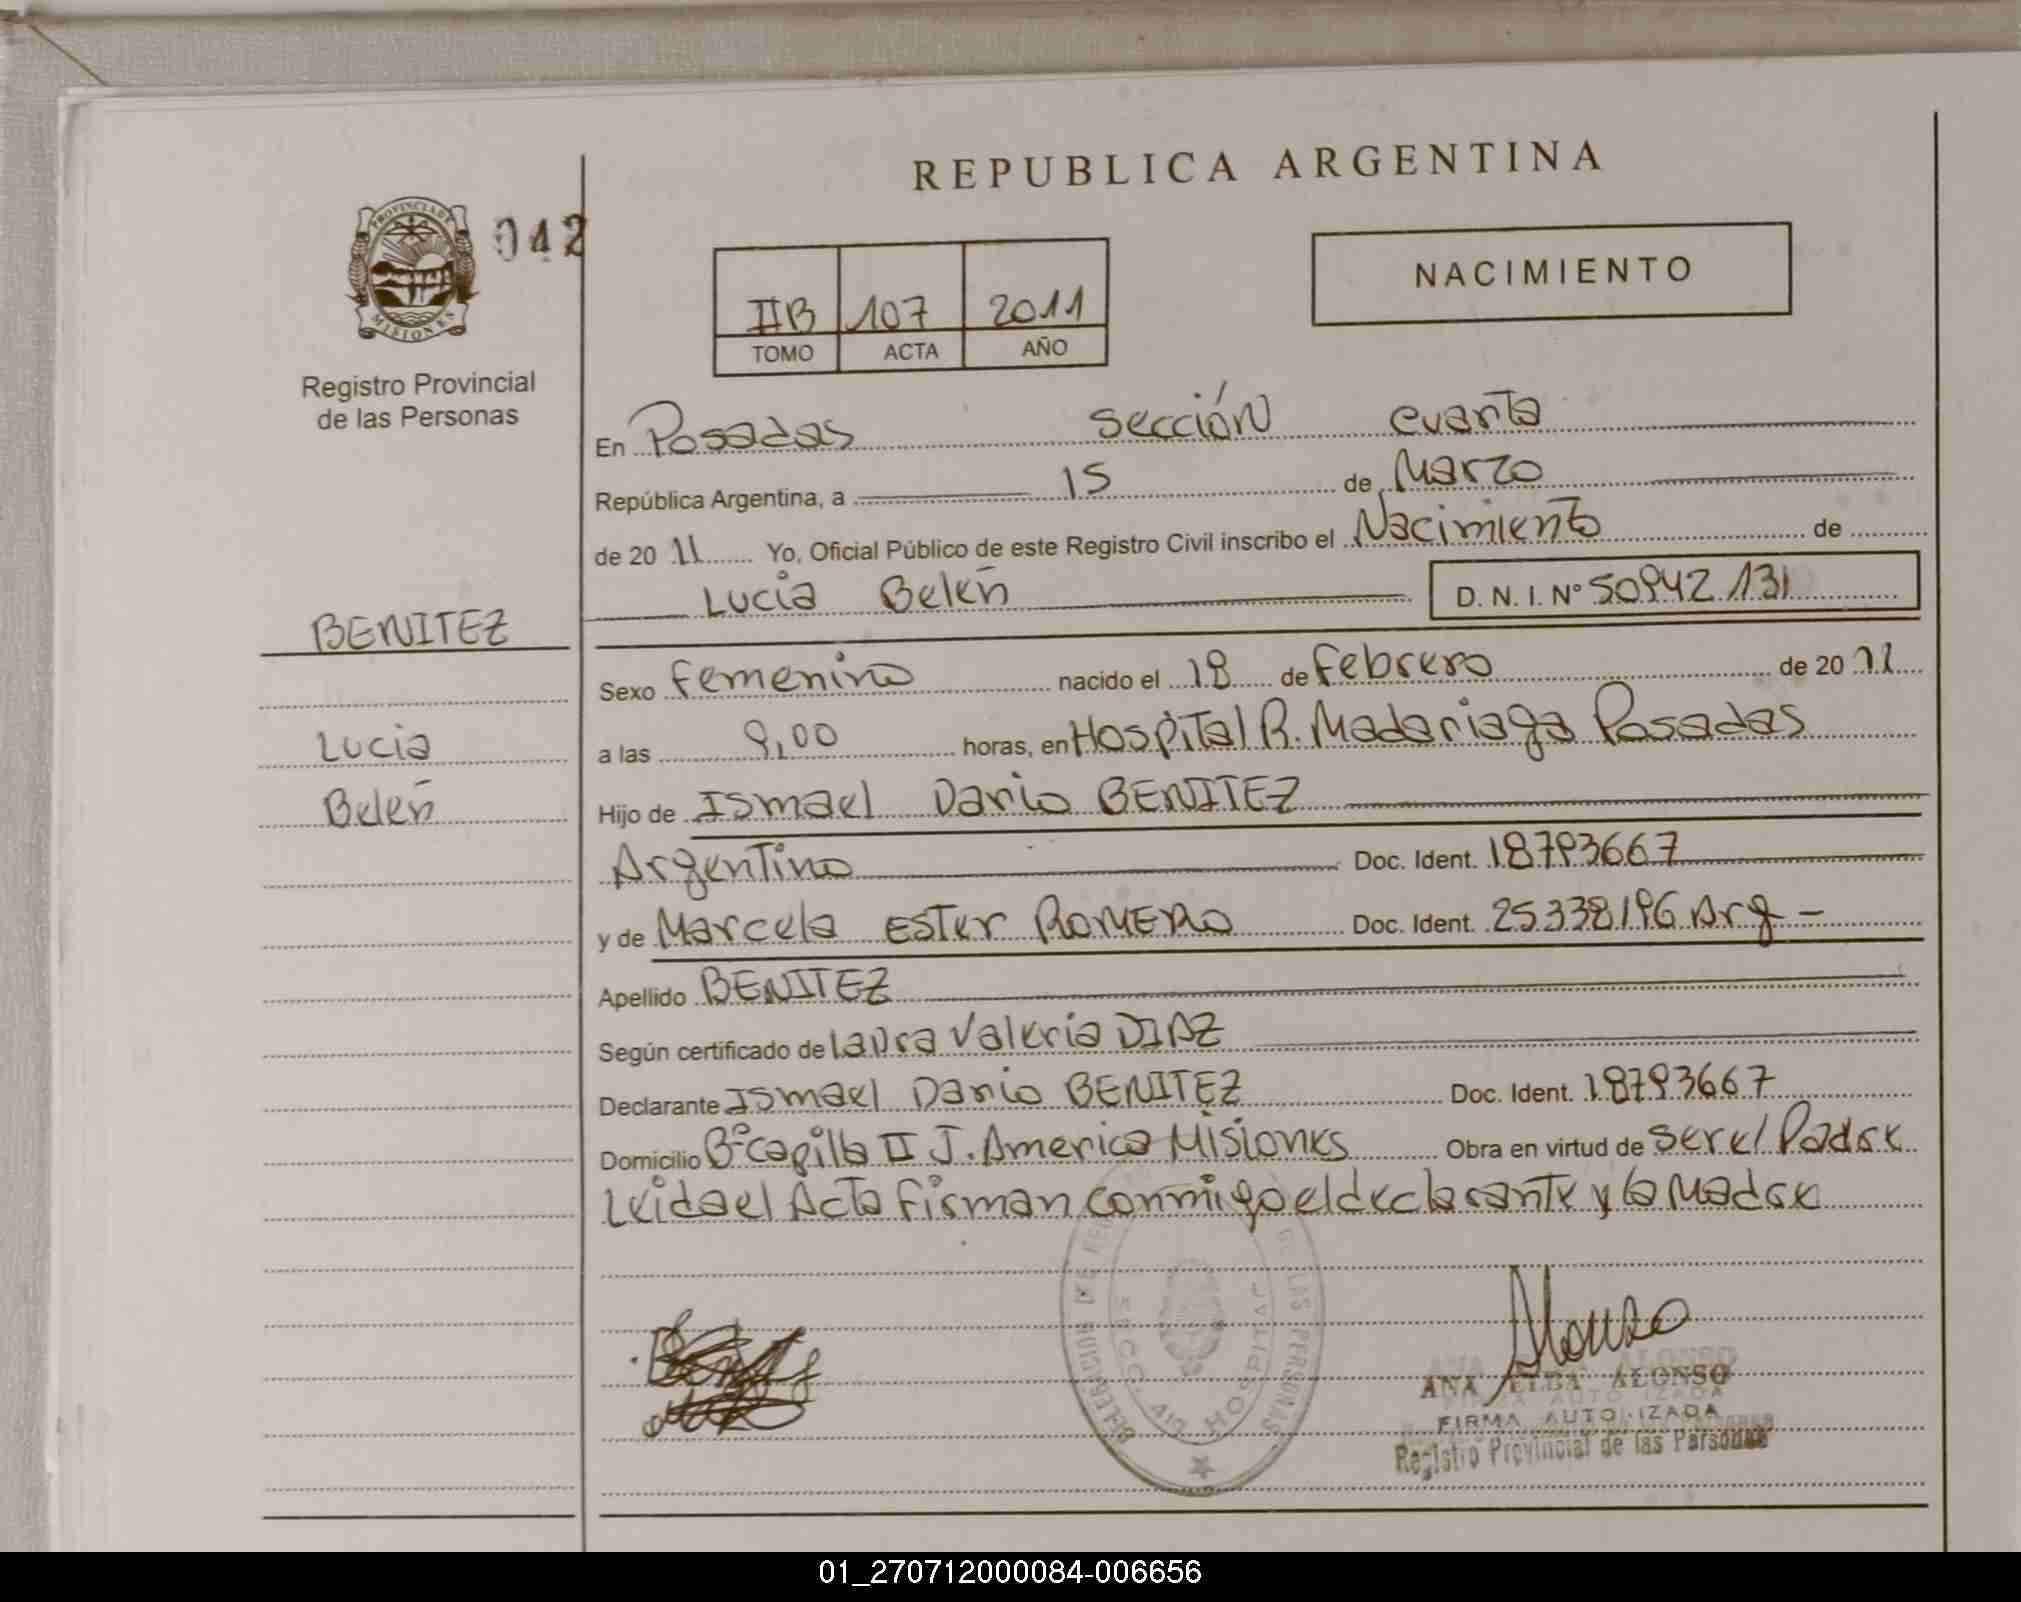 REPUBLICA ARGENTINA
PROVINCIA DE
MISIONES
042
Registro Provincial
de las Personas
IIB 107 2011
TOMO ACTA AÑO
NACIMIENTO
En Posadas sección cuarta
República Argentina, a 15 de Marzo
de 2011 Yo, Oficial Público de este Registro Civil inscribo el Nacimiento de
Lucia Belén D. N. I. Nº 50942131
BENITEZ
Lucia
Belén
Sexo femenino nacido el 18 de Febrero de 2011
a las 9,00 horas, en Hospital R. Madariaga Posadas
Hijo de Ismael Dario BENITEZ
Argentino Doc. Ident. 18793667
y de Marcela Ester ROMERO Doc. Ident. 25338196 Arg -
Apellido BENITEZ
Según certificado de Laura Valeria DIAZ
Declarante Ismael Dario BENITEZ Doc. Ident. 18793667
Domicilio Bº Capilla II J. America Misiones Obra en virtud de ser el Padre
Leida el Acta firman conmigo el declarante y la Madre
DELEGACION DE LAS PERSONAS
SECC. 4ta HOSPITAL
Alonso
ANA ELBA ALONSO
FIRMA AUTORIZADA
Registro Provincial de las Personas
01_270712000084-006656